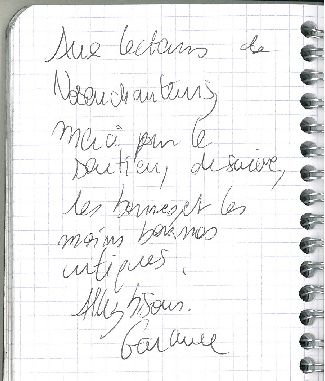 Aux lecteurs de
Nosenchanteurs
Merci pour le
soutien, de suivre,
les bonnes et les
moins bonnes
critiques.
Allez bisous.
Garance